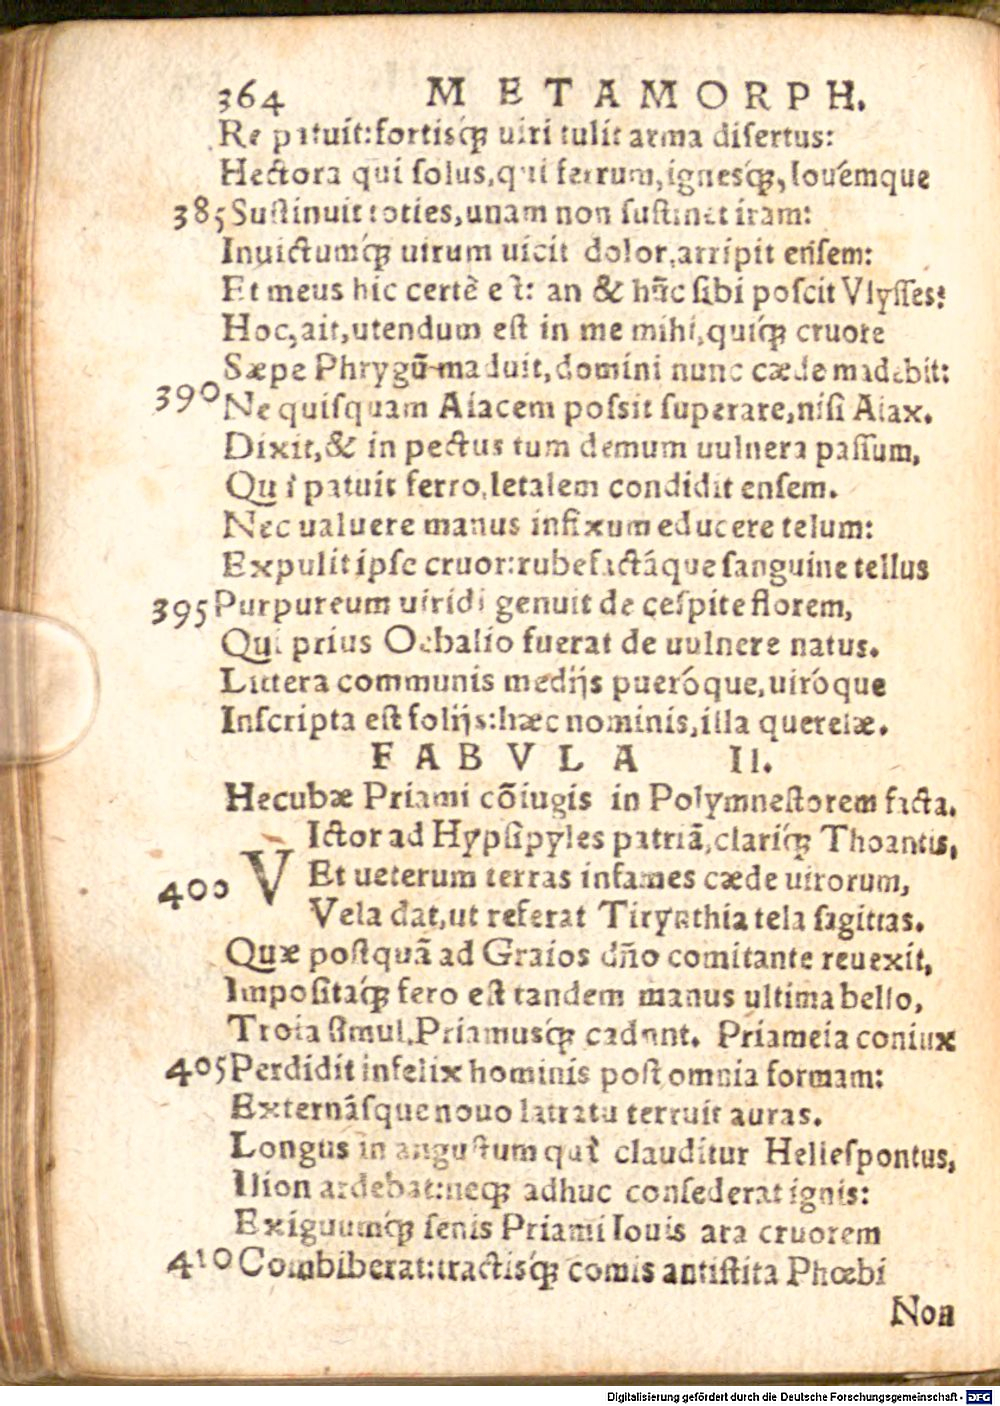 364 METAMORPH.
Re patuit:fortisq́; uiri tulit arma disertus:
Hectora qui solus,qui ferrum,ignesq́;,Iouémque
385 Sustinuit toties,unam non sustinet iram:
Inuictumq́; uirum uicit dolor,arripit ensem:
Et meus hic certè est: an & hũc sibi poscit Vlysses?
Hoc,ait,utendum est in me mihi,quiq́; cruore
Sæpe Phrygũ maduit,domini nunc cæde madebit:
390 Ne quisquam Aiacem possit superare,nisi Aiax.
Dixit,& in pectus tum demum uulnera passum,
Qui patuit ferro,letalem condidit ensem.
Nec ualuere manus infixum educere telum:
Expulit ipse cruor:rubefactáque sanguine tellus
395 Purpureum uiridi genuit de cespite florem,
Qui prius Oebalio fuerat de uulnere natus.
Littera communis medijs pueróque,uiróque
Inscripta est folijs:hæc nominis,illa querelæ.
FABVLA II.
Hecubæ Priami cõiugis in Polymnestorem facta.
VIctor ad Hypsipyles patriã,clariq́; Thoantis,
400 Et ueterum terras infames cæde uirorum,
Vela dat,ut referat Tirynthia tela sagittas.
Quæ postquã ad Graios dño comitante reuexit,
Impositaq́; fero est tandem manus ultima bello,
Troia simul,Priamusq́; cadunt. Priameia coniux
405 Perdidit infelix hominis post omnia formam:
Externãsque nouo latratu terruit auras.
Longus in angustum quà clauditur Hellespontus,
Ilion ardebat:neq; adhuc consederat ignis:
Exiguumq́; senis Priami Iouis ara cruorem
410 Combiberat:tractisq́; comis antistita Phœbi
Non
Digitalisierung gefördert durch die Deutsche Forschungsgemeinschaft - DFG